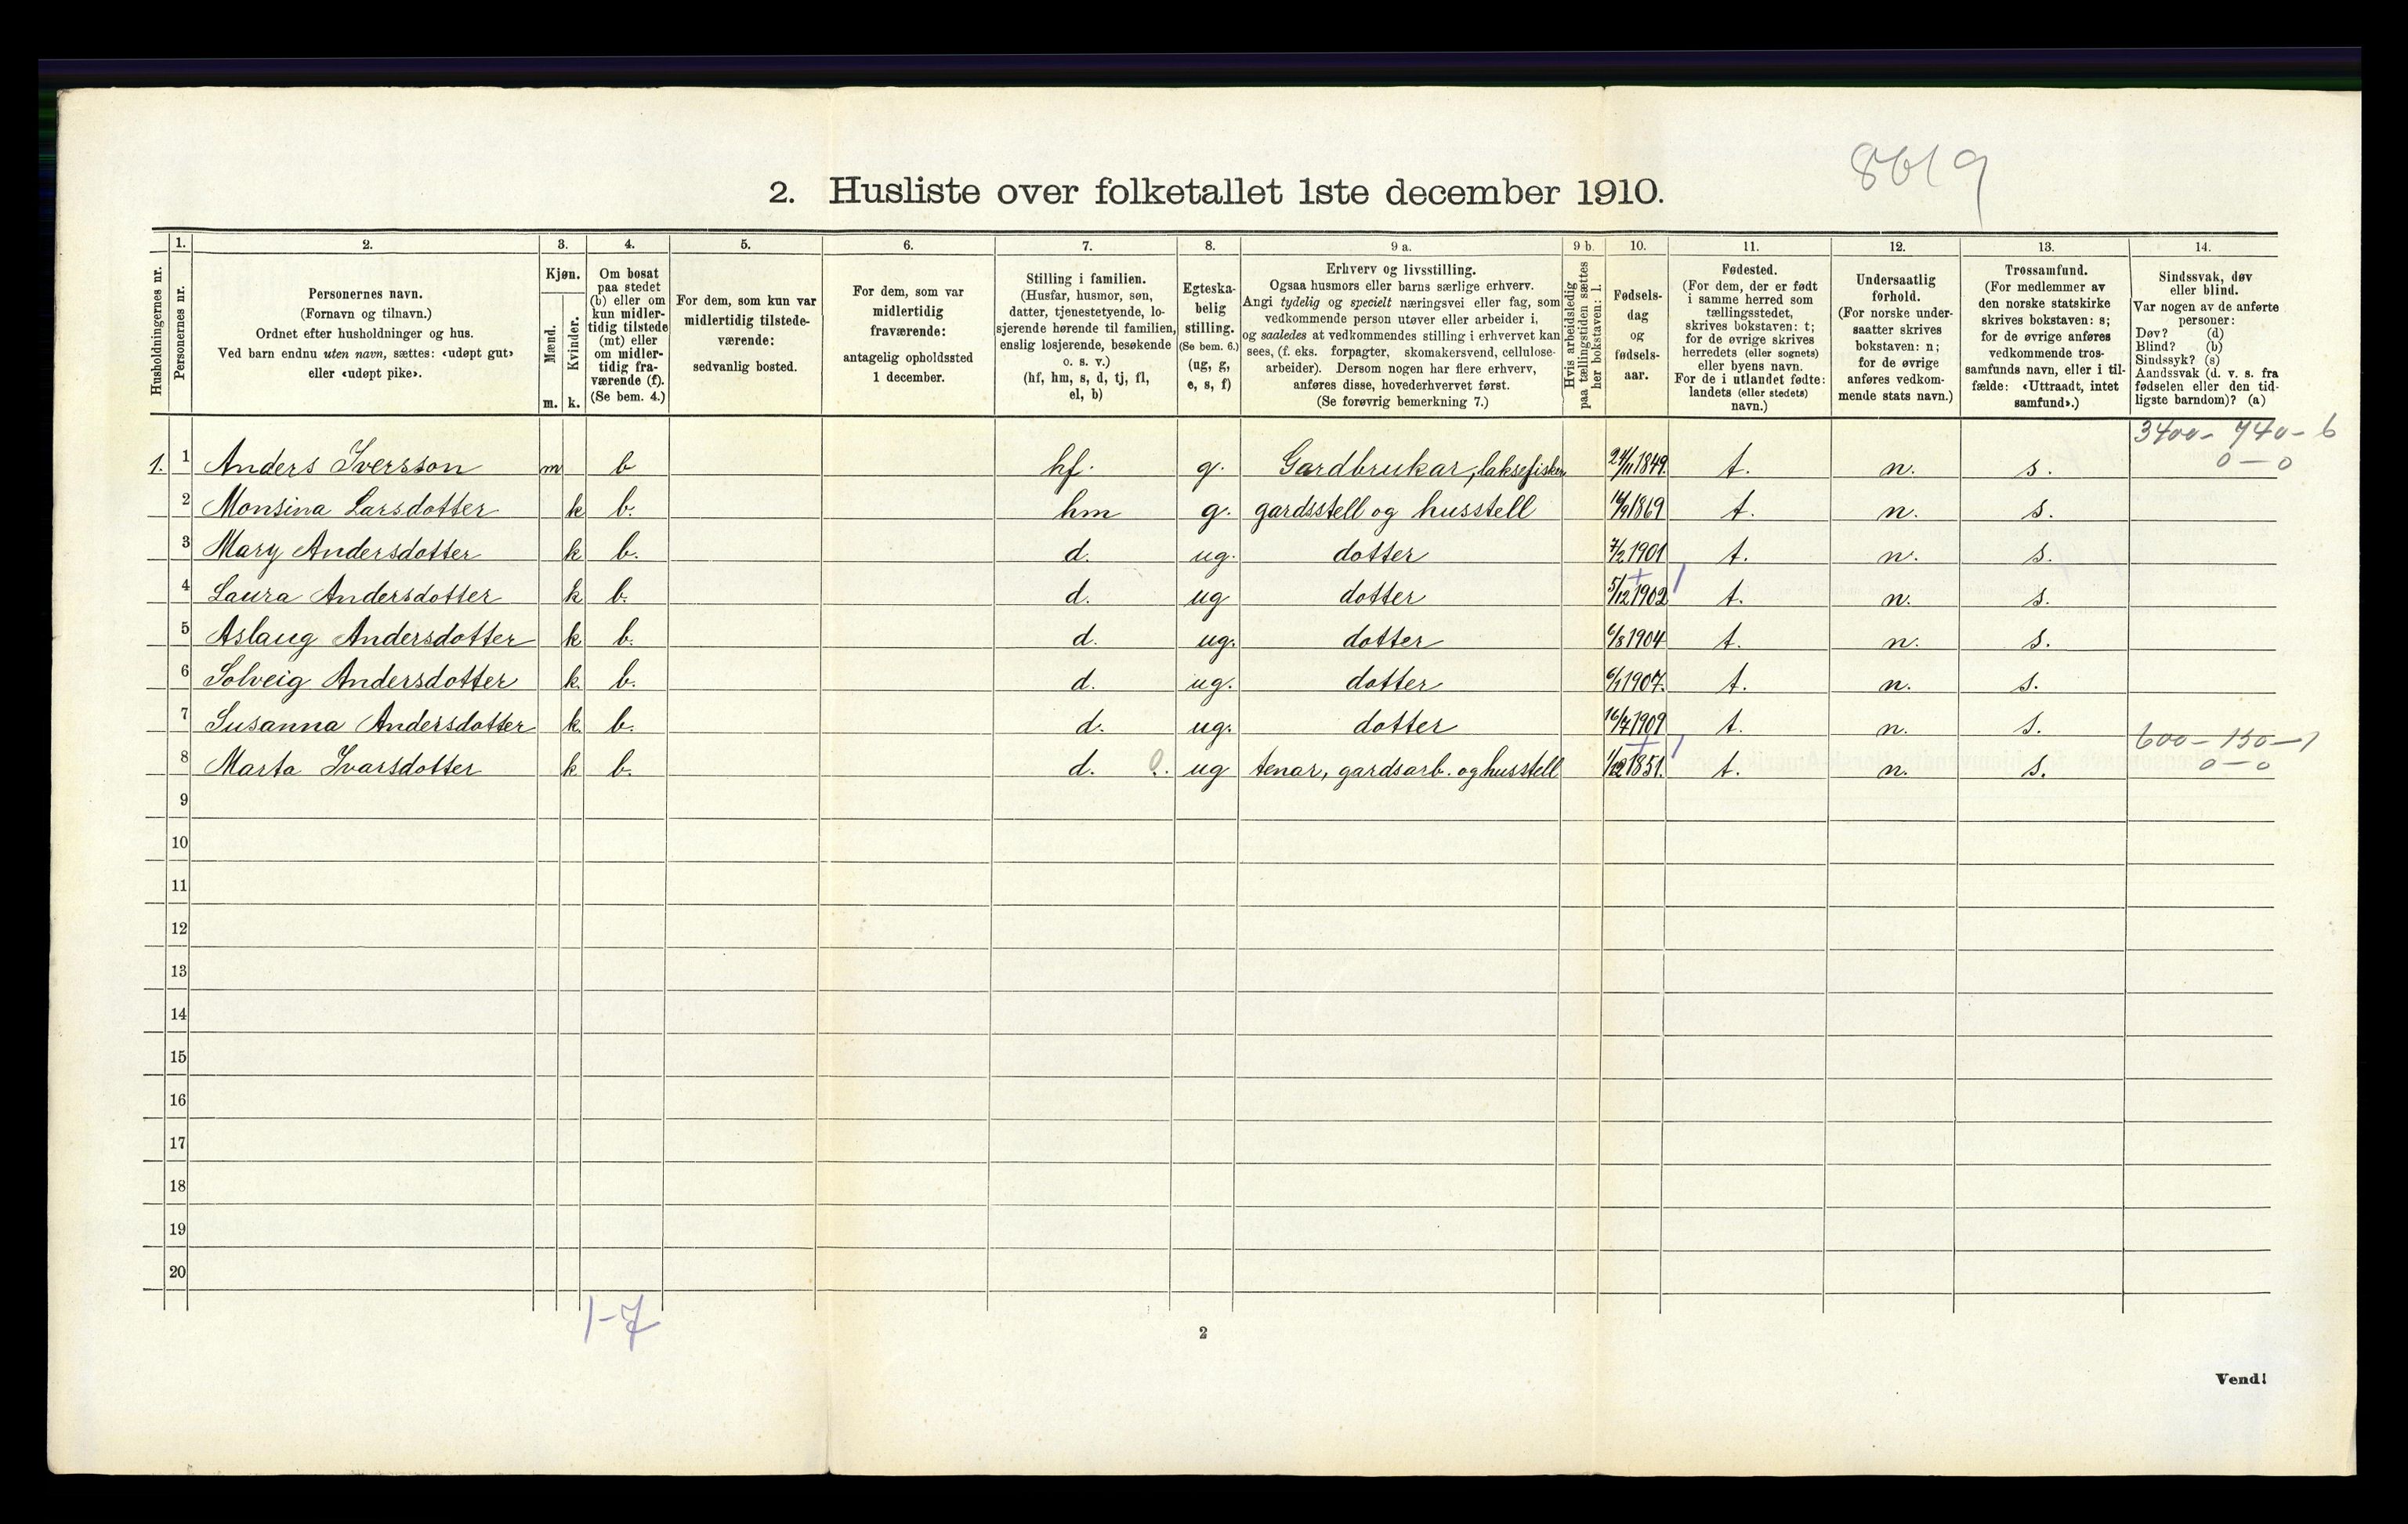 8619
2. Husliste over folketallet 1ste december 1910.
Husholdningernes nr.
1. Personernes nr.
2. Personernes navn.
(Fornavn og tilnavn.)
Ordnet efter husholdninger og hus.
Ved barn endnu uten navn, sættes: «udøpt gut»
eller «udøpt pike».
3. Kjøn.
Mænd. m.
Kvinder. k.
4. Om bosat
paa stedet
(b) eller om
kun midler-
tidig tilstede
(mt) eller
om midler-
tidig fra-
værende (f).
(Se bem. 4.)
5. For dem, som kun var
midlertidig tilstede-
værende:
sedvanlig bosted.
6. For dem, som var
midlertidig
fraværende:
antagelig opholdssted
1 december.
7. Stilling i familien.
(Husfar, husmor, søn,
datter, tjenestetyende, lo-
sjerende hørende til familien,
enslig losjerende, besøkende
o. s. v.)
(hf, hm, s, d, tj, fl,
el, b)
8. Egteska-
belig
stilling.
(Se bem. 6.)
(ug, g,
e, s, f)
9 a. Erhverv og livsstilling.
Ogsaa husmors eller barns særlige erhverv.
Angi tydelig og specielt næringsvei eller fag, som
vedkommende person utøver eller arbeider i,
og saaledes at vedkommendes stilling i erhvervet kan
sees, (f. eks. forpagter, skomakersvend, cellulose-
arbeider). Dersom nogen har flere erhverv,
anføres disse, hovederhvervet først.
(Se forøvrig bemerkning 7.)
9 b. Hvis arbeidsledig
paa tællingstiden sættes
her bokstaven: l.
10. Fødsels-
dag
og
fødsels-
aar.
11. Fødested.
(For dem, der er født
i samme herred som
tællingsstedet,
skrives bokstaven: t;
for de øvrige skrives
herredets (eller sognets)
eller byens navn.
For de i utlandet fødte:
landets (eller stedets)
navn.)
12. Undersaatlig
forhold.
(For norske under-
saatter skrives
bokstaven: n;
for de øvrige
anføres vedkom-
mende stats navn.)
13. Trossamfund.
(For medlemmer av
den norske statskirke
skrives bokstaven: s;
for de øvrige anføres
vedkommende tros-
samfunds navn, eller i til-
fælde: «Uttraadt, intet
samfund».)
14. Sindssvak, døv
eller blind.
Var nogen av de anførte
personer:
Døv? (d)
Blind? (b)
Sindssyk? (s)
Aandssvak (d. v. s. fra
fødselen eller den tid-
ligste barndom)? (a)
3400- 740- 6
1. 1 Anders Iversson m b hf. g. Gardbrukar, laksefisker 24/11 1849. t. n. s. 0 — 0
2 Monsina Larsdotter k b. hm g. gardsstell og husstell 14/9 1869 t. n. s.
3 Mary Andersdotter k b. d. ug. dotter 7/2 1901 t. n. s.
4 Laura Andersdotter k b. d. ug dotter 5/12 1902 t. n. s.
5 Aslaug Andersdotter k b. d. ug. dotter 6/8 1904 t. n. s.
6 Solveig Andersdotter k. b. d. ug. dotter 6/1 1907. t. n. s.
7 Susanna Andersdotter k. b. d. ug. dotter 16/7 1909 t. n. s.
600- 150-1
8 Marta Ivarsdotter k b. d. 0. ug tenar, gardsarb. og husstell 1/12 1851. t. n. s. 0 — 0
9
10
11
12
13
14
15
16
17
18
19
20
1-7
2
Vend!